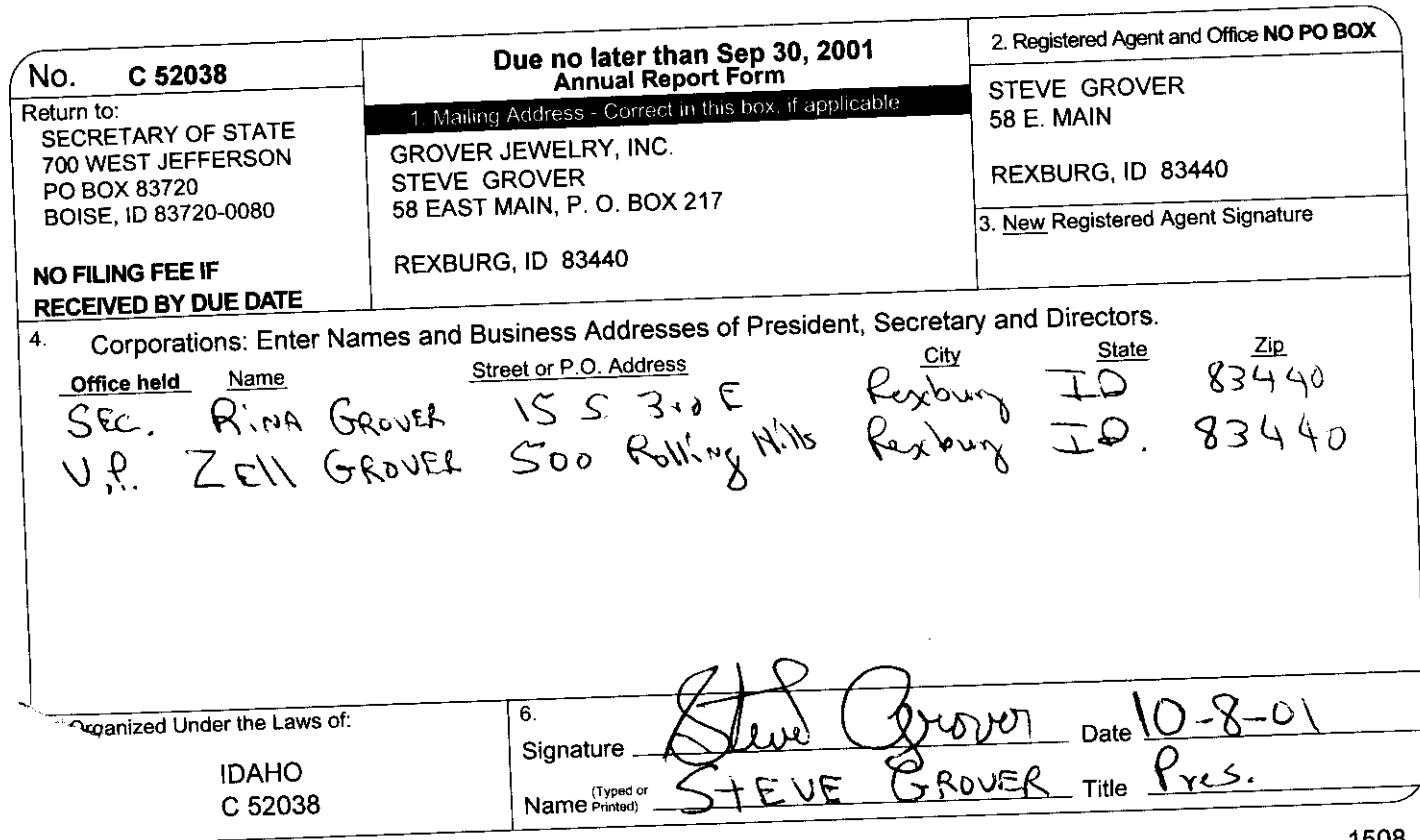 No. C 52038
Return to:
SECRETARY OF STATE
700 WEST JEFFERSON
PO BOX 83720
BOISE, ID 83720-0080
NO FILING FEE IF
RECEIVED BY DUE DATE
Due no later than Sep 30, 2001
Annual Report Form
1. Mailing Address - Correct in this box, if applicable
GROVER JEWELRY, INC.
STEVE GROVER
58 EAST MAIN, P. O. BOX 217
REXBURG, ID 83440
2. Registered Agent and Office NO PO BOX
STEVE GROVER
58 E. MAIN
REXBURG, ID 83440
3. New Registered Agent Signature
4. Corporations: Enter Names and Business Addresses of President, Secretary and Directors.
Office held Name Street or P.O. Address City State Zip
SEC. RINA GROVER 15 S. 3rd E Rexburg ID 83440
V.P. ZEll GROVER 500 Rolling Hills Rexburg ID. 83440
Organized Under the Laws of:
IDAHO
C 52038
6.
Signature Steve Grover Date 10-8-01
Name (Typed or Printed) STEVE GROVER Title Pres.
1508